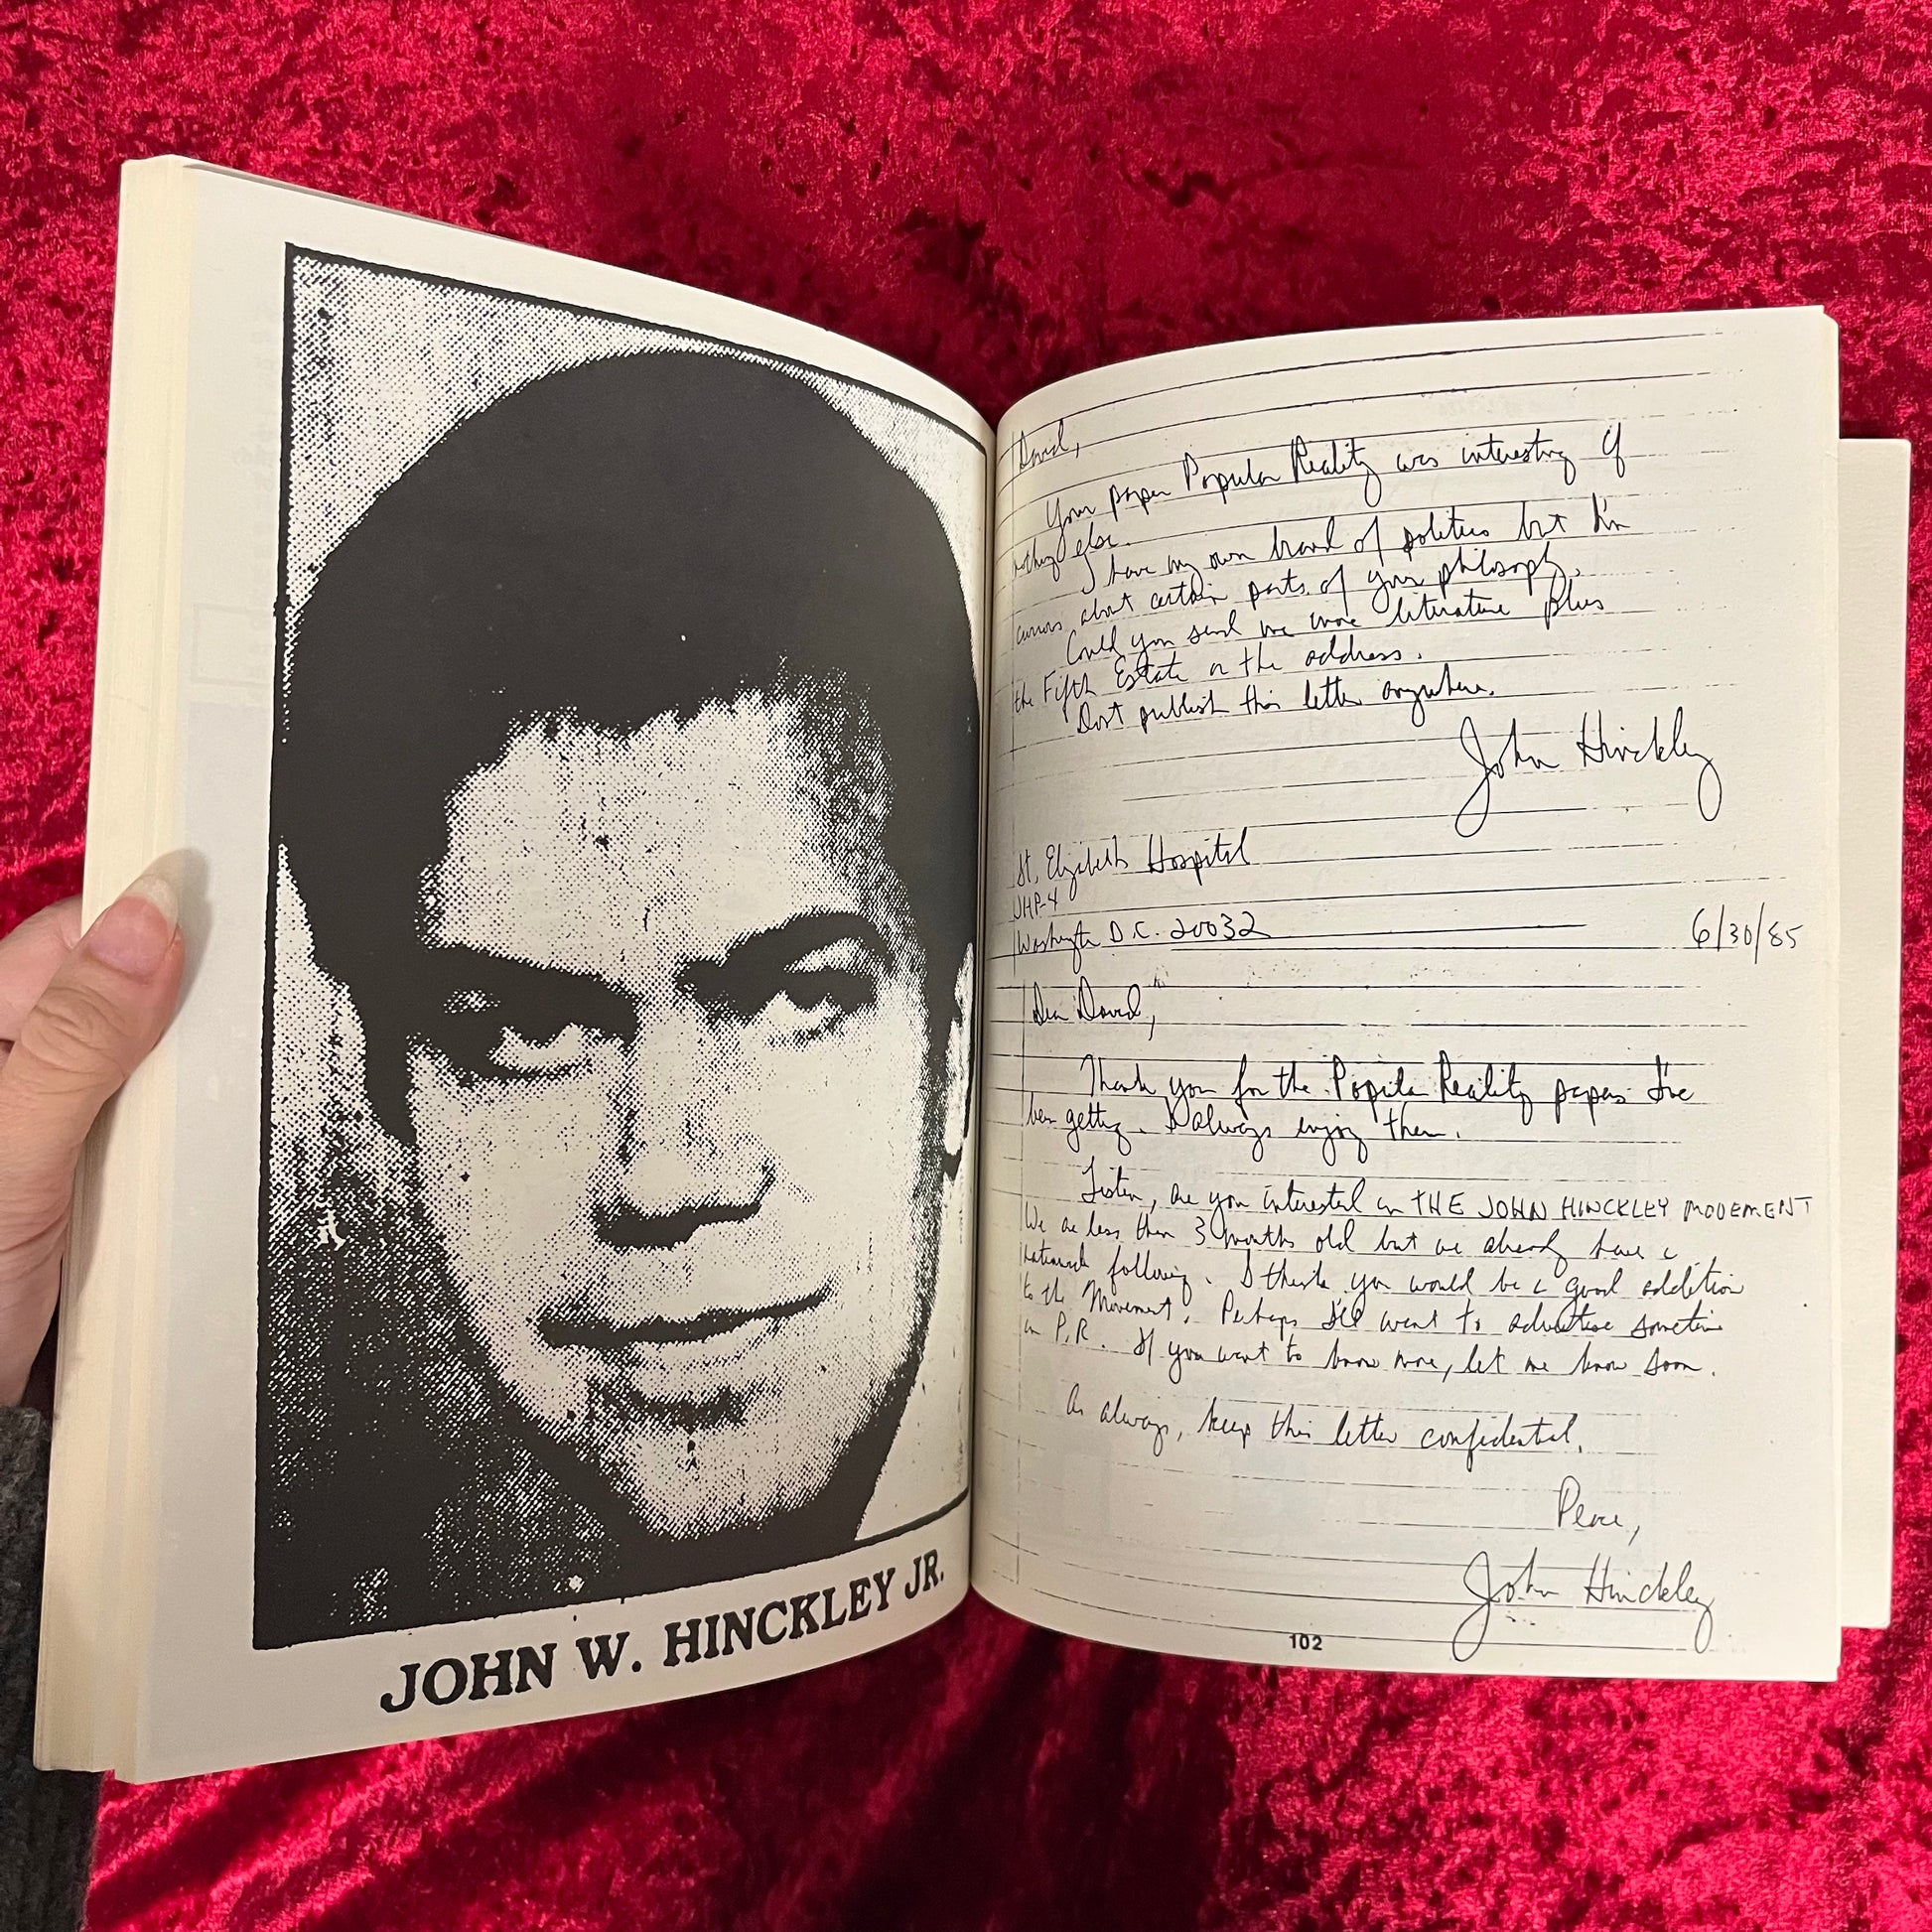 JOHN W. HINCKLEY JR.
David,
Your paper Popular Reality was interesting if
nothing else.
I have my own brand of politics but I'm
curious about certain parts of your philosophy.
Could you send me more literature plus
the Fifth Estate or the address.
Don't publish this letter anywhere.
John Hinckley
St. Elizabeths Hospital
JHP-4
Washington D.C. 20032
6/30/85
Dear David,
Thank you for the Popular Reality papers I've
been getting. I always enjoy them.
Listen, are you interested in THE JOHN HINCKLEY MOVEMENT
We are less than 3 months old but we already have a
nationwide following. I think you would be a good addition
to the Movement. Perhaps I'll want to advertise sometime
in P.R. If you want to know more, let me know soon.
As always, keep this letter confidential.
Peace,
John Hinckley
102